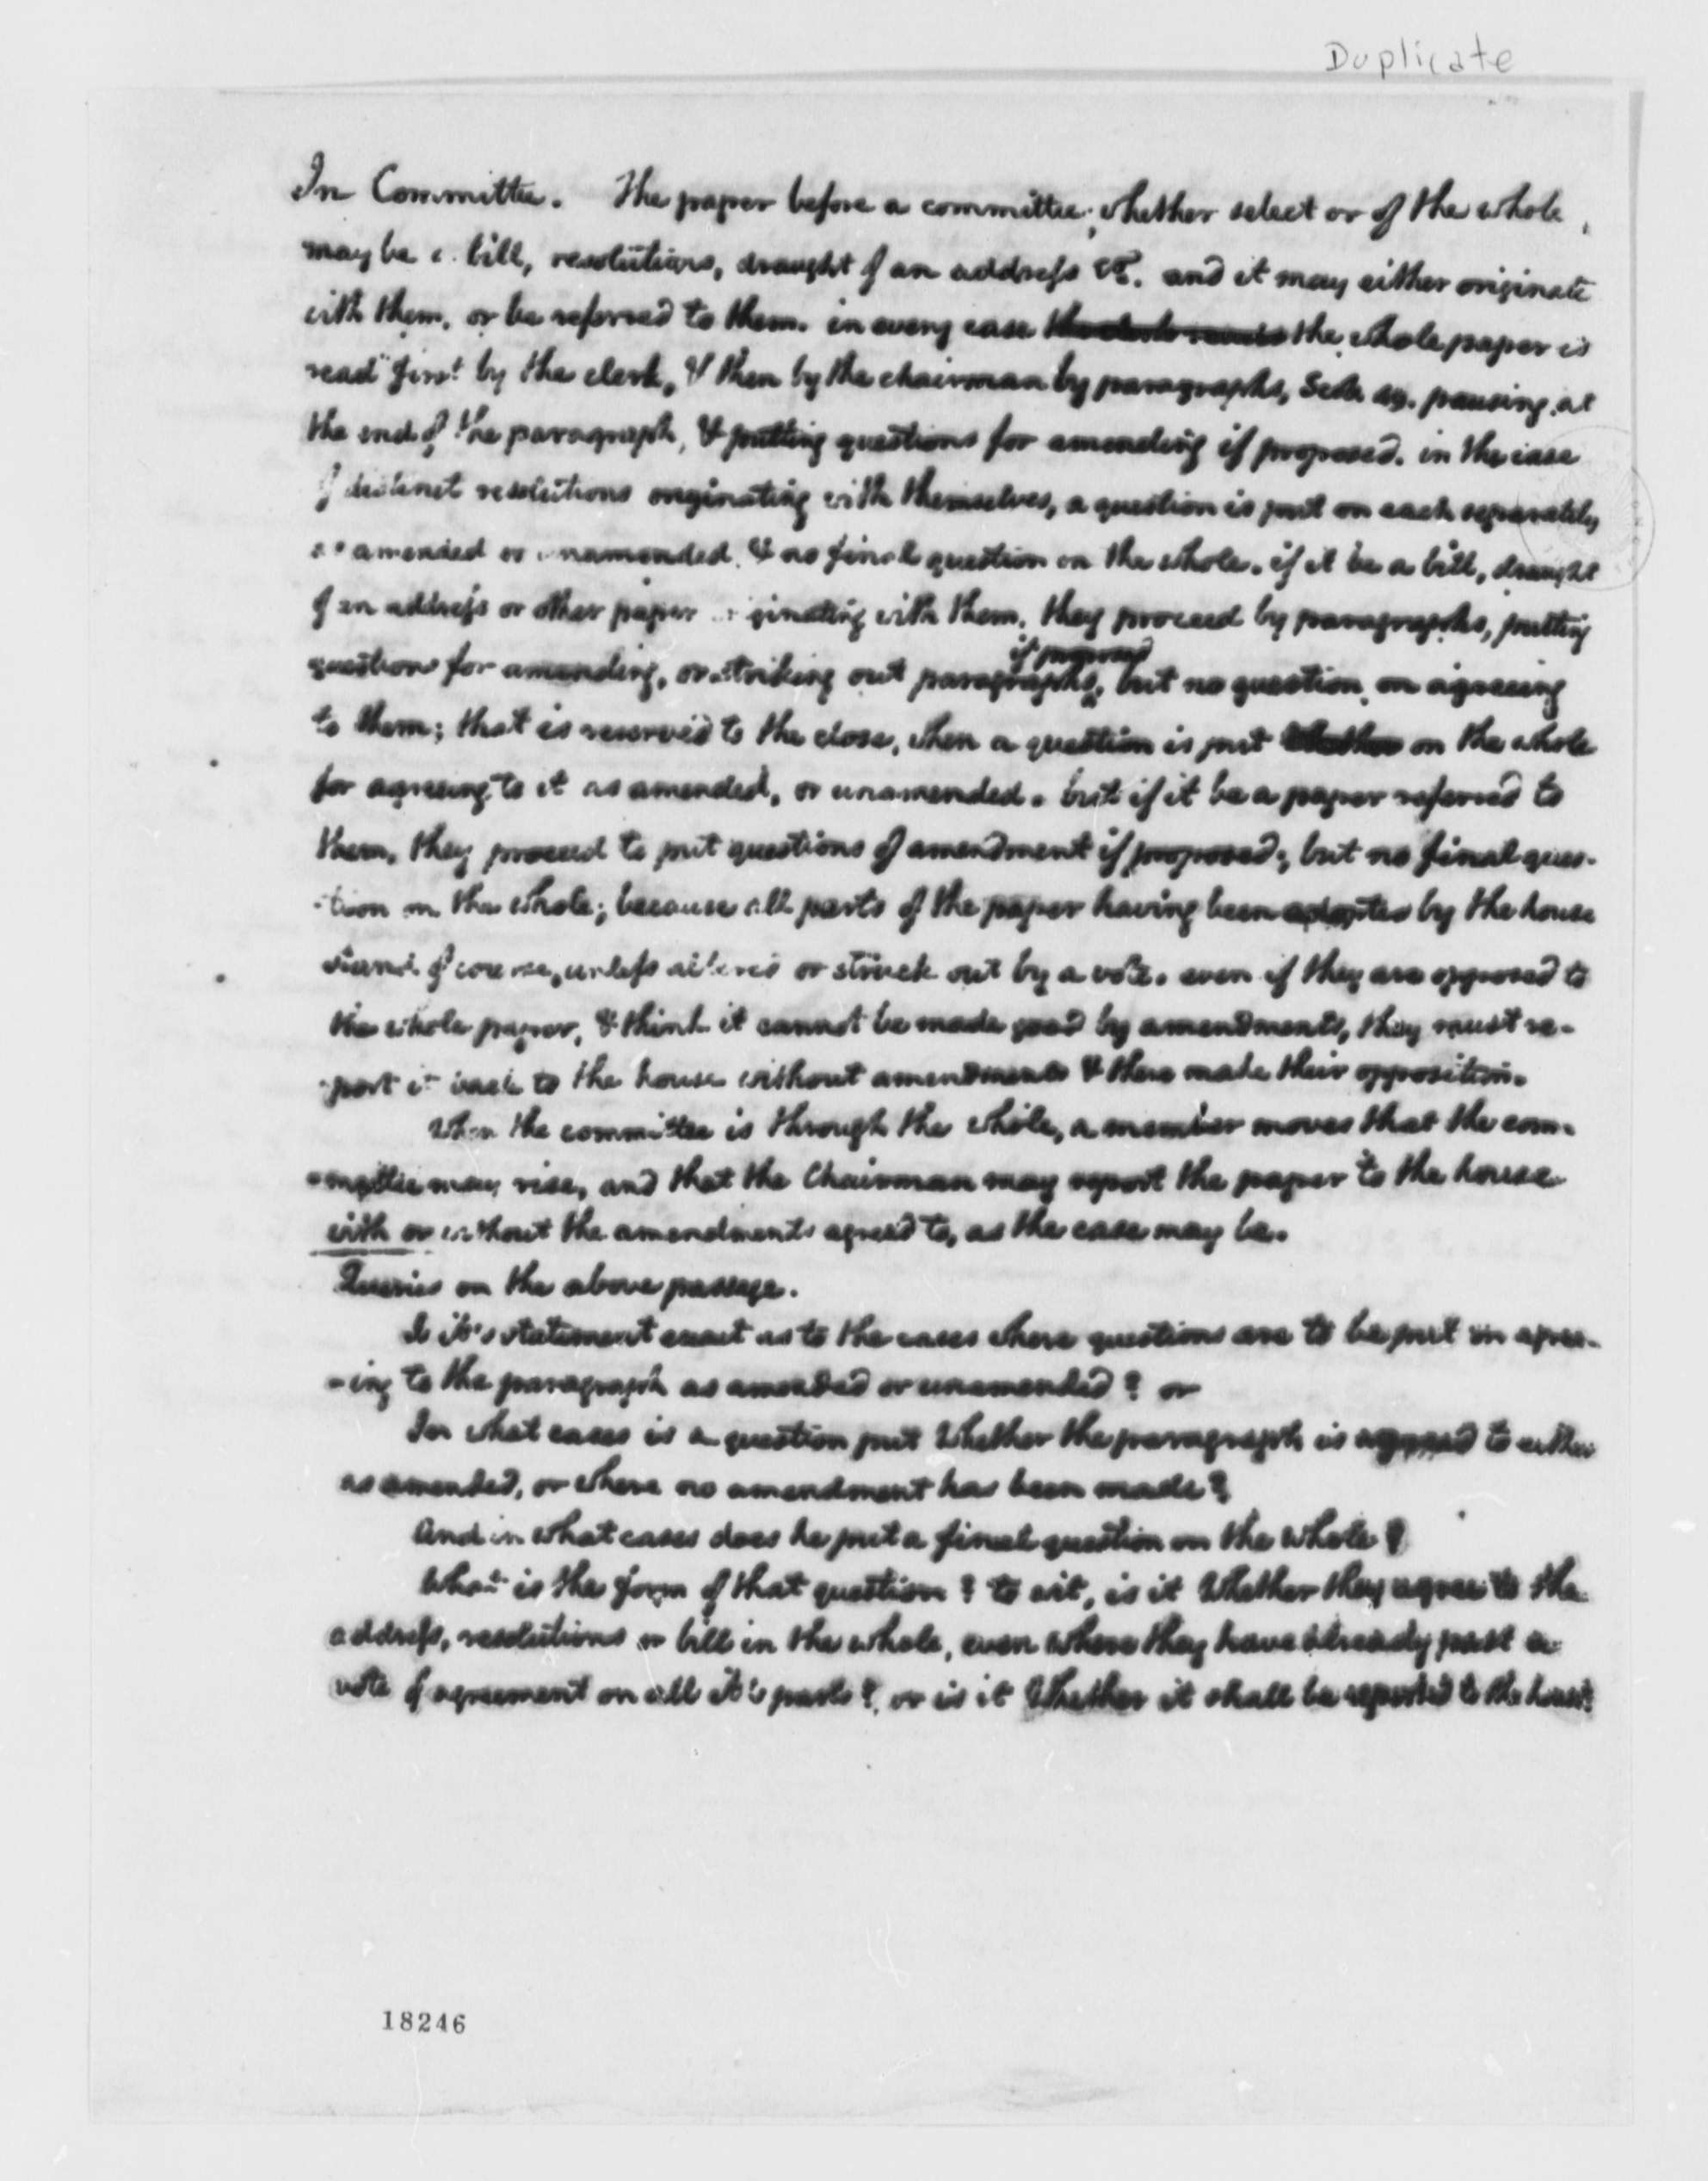 Duplicate
In Committee. The paper before a committee, whether select or of the whole,
may be a bill, resolutions, draught of an address &c. and it may either originate
with them, or be referred to them. in every case the clerk reads the whole paper is
read first by the clerk, & then by the chairman by paragraphs, pausing at
the end of the paragraph, & putting questions for amending if proposed. in the case
of distinct resolutions originating with themselves, a question is put on each separately,
as amended or unamended, & no final question on the whole. if it be a bill, draught
of an address or other paper originating with them, they proceed by paragraphs, putting
if proposed
questions for amending, or striking out paragraphs, but no question on agreeing
to them; that is reserved to the close, when a question is put whether on the whole
for agreeing to it as amended, or unamended. but if it be a paper referred to
them, they proceed to put questions of amendment if proposed, but no final ques-
-tion on the whole; because all parts of the paper having been adopted by the house
stand of course, unless altered or struck out by a vote. even if they are opposed to
the whole paper, & think it cannot be made good by amendments, they must re-
-port it back to the house without amendments & there make their opposition.
When the committee is through the whole, a member moves that the com-
-mittee may rise, and that the Chairman may report the paper to the house
with or without the amendments agreed to, as the case may be.
Queries on the above passage.
Is it's statement exact as to the cases where questions are to be put on agree-
-ing to the paragraph as amended or unamended? or
In what cases is a question put Whether the paragraph is agreed to either
as amended, or where no amendment has been made?
And in what cases does he put a final question on the whole?
What is the form of that question? to wit, is it Whether they agree to the
address, resolutions or bill in the whole, even where they have already past a
vote of agreement on all it's parts? or is it Whether it shall be reported to the house?
18246